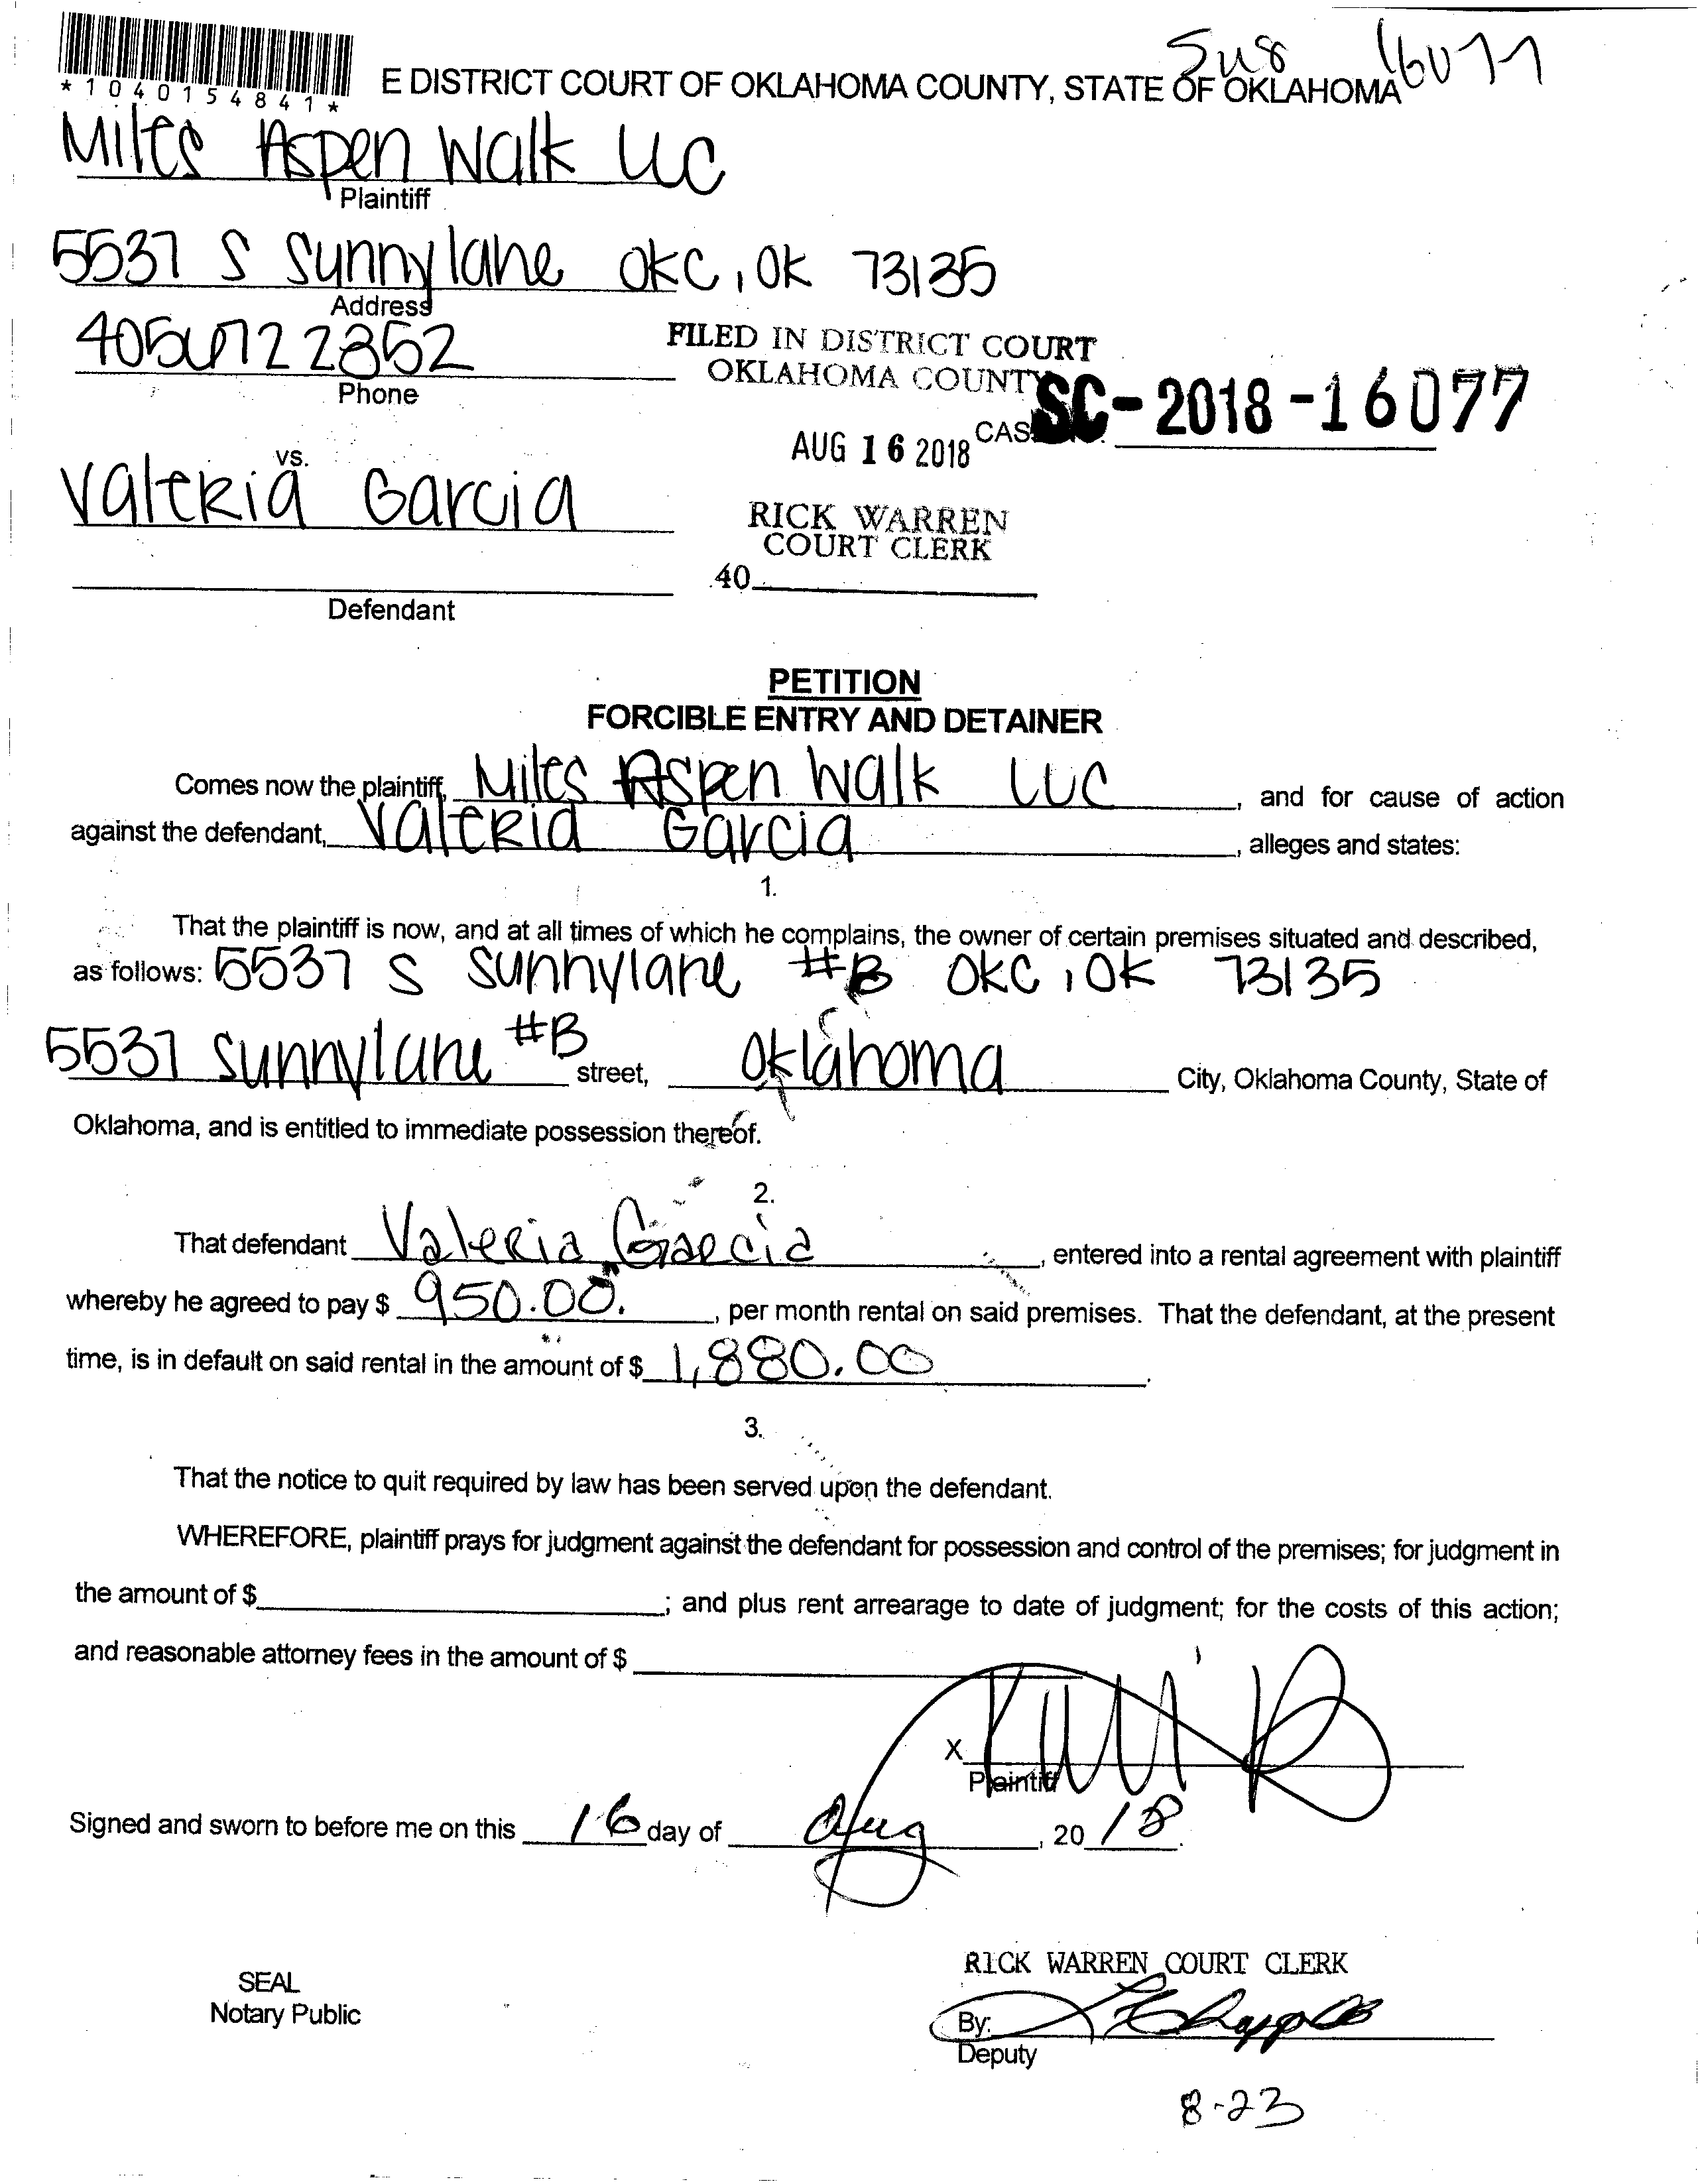 5u8 16077
*1040154841*
E DISTRICT COURT OF OKLAHOMA COUNTY, STATE OF OKLAHOMA
Miles Aspen Walk LLC
Plaintiff
5537 S Sunnylane OKC, OK 73135
Address
4056722352
Phone
FILED IN DISTRICT COURT
OKLAHOMA COUNTY
CAS SC-2018-16077
AUG 16 2018
vs.
Valeria Garcia
RICK WARREN
COURT CLERK
40
Defendant
PETITION
FORCIBLE ENTRY AND DETAINER
Comes now the plaintiff, Miles Aspen Walk LLC, and for cause of action
against the defendant, Valeria Garcia, alleges and states:
1.
That the plaintiff is now, and at all times of which he complains, the owner of certain premises situated and described,
as follows: 5537 S Sunnylane #B OKC, OK 73135
5537 Sunnylane #B street, Oklahoma City, Oklahoma County, State of
Oklahoma, and is entitled to immediate possession thereof.
2.
That defendant Valeria Garcia, entered into a rental agreement with plaintiff
whereby he agreed to pay $ 950.00., per month rental on said premises. That the defendant, at the present
time, is in default on said rental in the amount of $ 1,880.00.
3.
That the notice to quit required by law has been served upon the defendant.
WHEREFORE, plaintiff prays for judgment against the defendant for possession and control of the premises; for judgment in
the amount of $; and plus rent arrearage to date of judgment; for the costs of this action;
and reasonable attorney fees in the amount of $
X
Plaintiff
Signed and sworn to before me on this 16 day of Aug, 20 18.
RICK WARREN COURT CLERK
SEAL
Notary Public
By:
Deputy
8-23